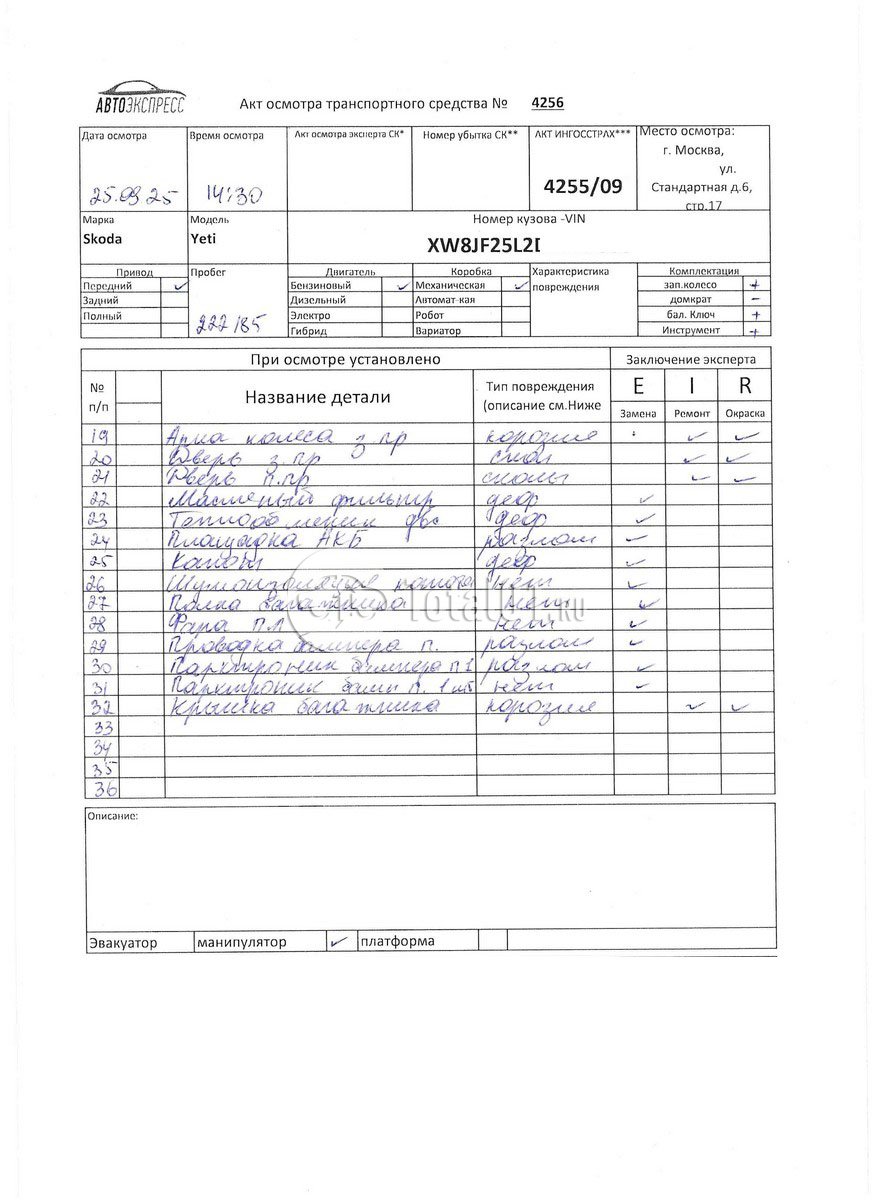 АВТОЭКСПРЕСС
Акт осмотра транспортного средства № 4256
Дата осмотра Время осмотра Акт осмотра эксперта СК* Номер убытка СК** АКТ ИНГОССТРАХ*** Место осмотра:
г. Москва,
ул.
25.09.25 14:30 4255/09 Стандартная д.6,
стр.17
Марка Модель Номер кузова -VIN
Skoda Yeti XW8JF25L2
Привод Пробег Двигатель Коробка Характеристика Комплектация
Передний ✓ Бензиновый ✓ Механическая ✓ повреждения зап.колесо +
Задний Дизельный Автомат-кая домкрат -
Полный 222185 Электро Робот бал. Ключ +
Гибрид Вариатор Инструмент +
При осмотре установлено Заключение эксперта
№ п/п Название детали Тип повреждения E I R
(описание см.Ниже Замена Ремонт Окраска
19 Арка колеса з пр ✓ ✓
20 Дверь з.пр ✓ ✓
21 Дверь п.пр сколы ✓ ✓
22 фильтр деф ✓
23 двс деф ✓
24 Площадка АКБ разлом ✓
25 Капот деф ✓
26 капота нет ✓
27 Полка багажника нет ✓
28 Фара п.л нет ✓
29 Проводка бампера п. разлом ✓
30 Парктроник бампера п разлом ✓
31 Парктроник бамп п. 1 шт нет ✓
32 Крышка багажника ✓ ✓
33
34
35
36
Описание:
Эвакуатор манипулятор ✓ платформа
Total01.RU